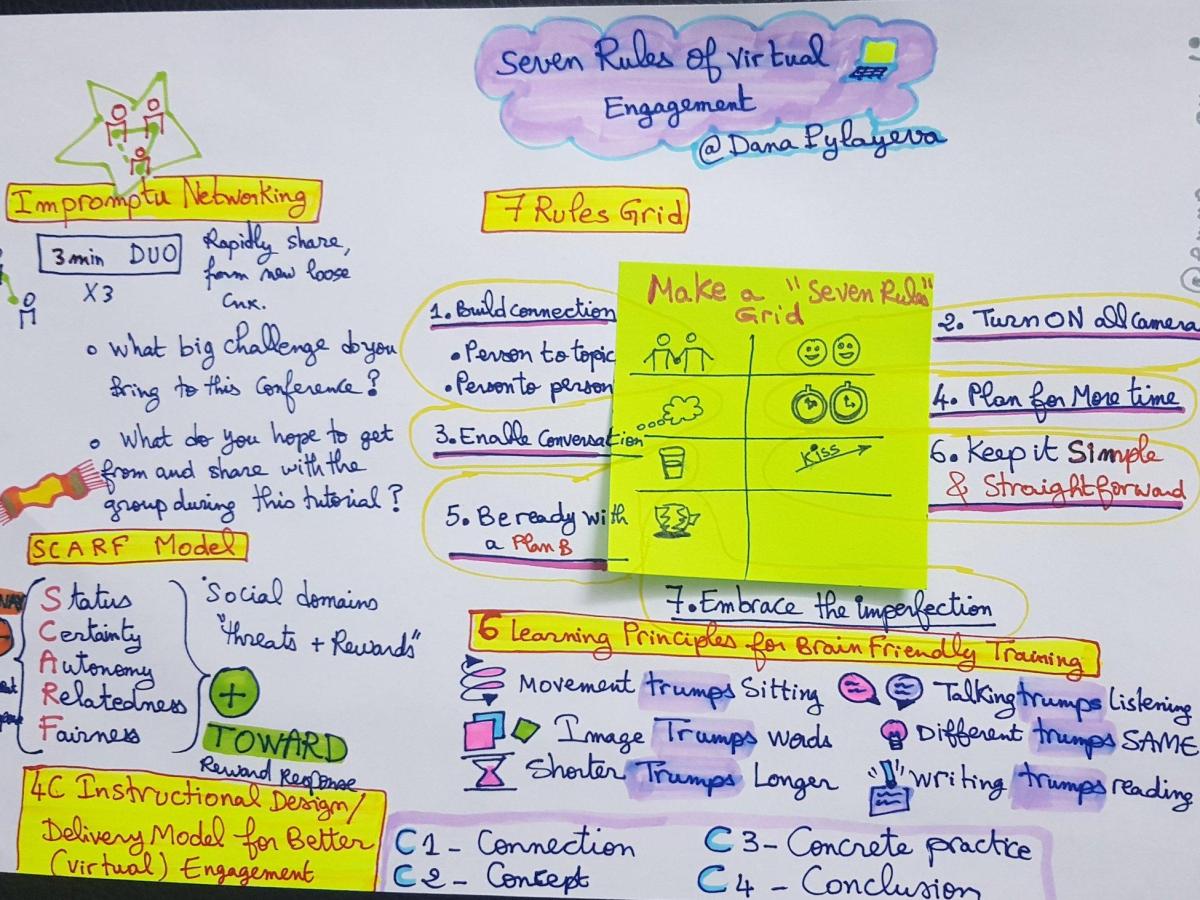 Seven Rules of Virtual
Engagement
@Dana Pylayeva
Impromptu Networking
3min DUO
X3
Rapidly share,
form new loose
Cnx.
What big challenge do you
Bring to this Conference?
What do you hope to get
from and share with the
group during this tutorial?
SCARF Model
Status
Certainty
Autonomy
Relatedness
Fairness
Social domains
"threats + Rewards"
+
TOWARD
Reward Response
7 Rules Grid
Make a "Seven Rules"
Grid
Kiss
1. Build connection
• Person to topic
• Person to person
2. Turn ON all Camera
3. Enable Conversation
4. Plan for More time
5. Be ready with
a Plan B
6. Keep it Simple
& Straightforward
7. Embrace the imperfection
6 Learning Principles for Brain Friendly Training
Movement trumps Sitting
Talking trumps listening
Image Trumps words
Different trumps SAME
Shorter Trumps Longer
Writing trumps reading
4C Instructional Design/
Delivery Model for Better
(virtual) Engagement
C1 - Connection
C2 - Concept
C3 - Concrete practice
C4 - Conclusion